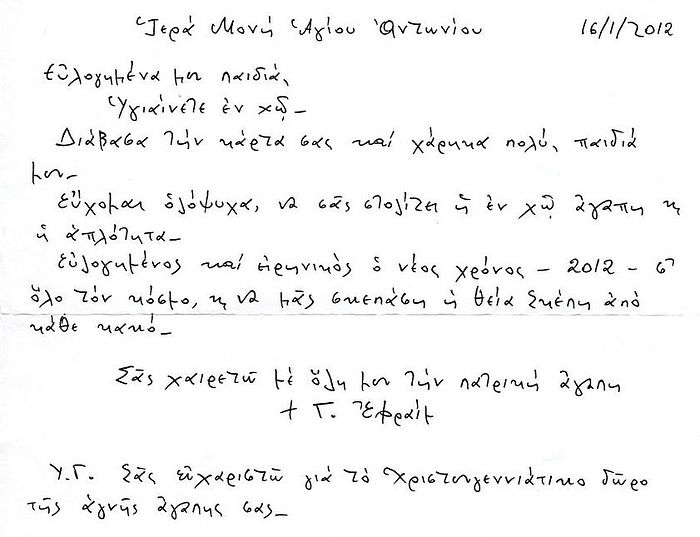 Ἱερά Μονή Ἁγίου Ἀντωνίου 16/1/2012
Εὐλογημένα μου παιδιά,
Ὑγιαίνετε ἐν χῷ_
Διάβασα τήν κάρτα σας καί χάρηκα πολύ, παιδιά
μου_
Εὔχομαι ὁλόψυχα, νά σᾶς στολίζει ἡ ἐν χῷ ἀγάπη κ
ἡ ἁπλότητα_
Εὐλογημένος καί εἰρηνικός ὁ νέος χρόνος – 2012 – σ'
ὅλο τόν κόσμο, κ νά μᾶς σκεπάση ἡ θεία Σκέπη ἀπό
κάθε κακό_
Σᾶς χαιρετῶ μέ ὅλη μου τήν πατρική ἀγάπη
+ Γ. Ἐφραίμ
Υ.Γ. Σᾶς εὐχαριστῶ γιά τό Χριστουγεννιάτικο δῶρο
τῆς ἁγνῆς ἀγάπης σας_